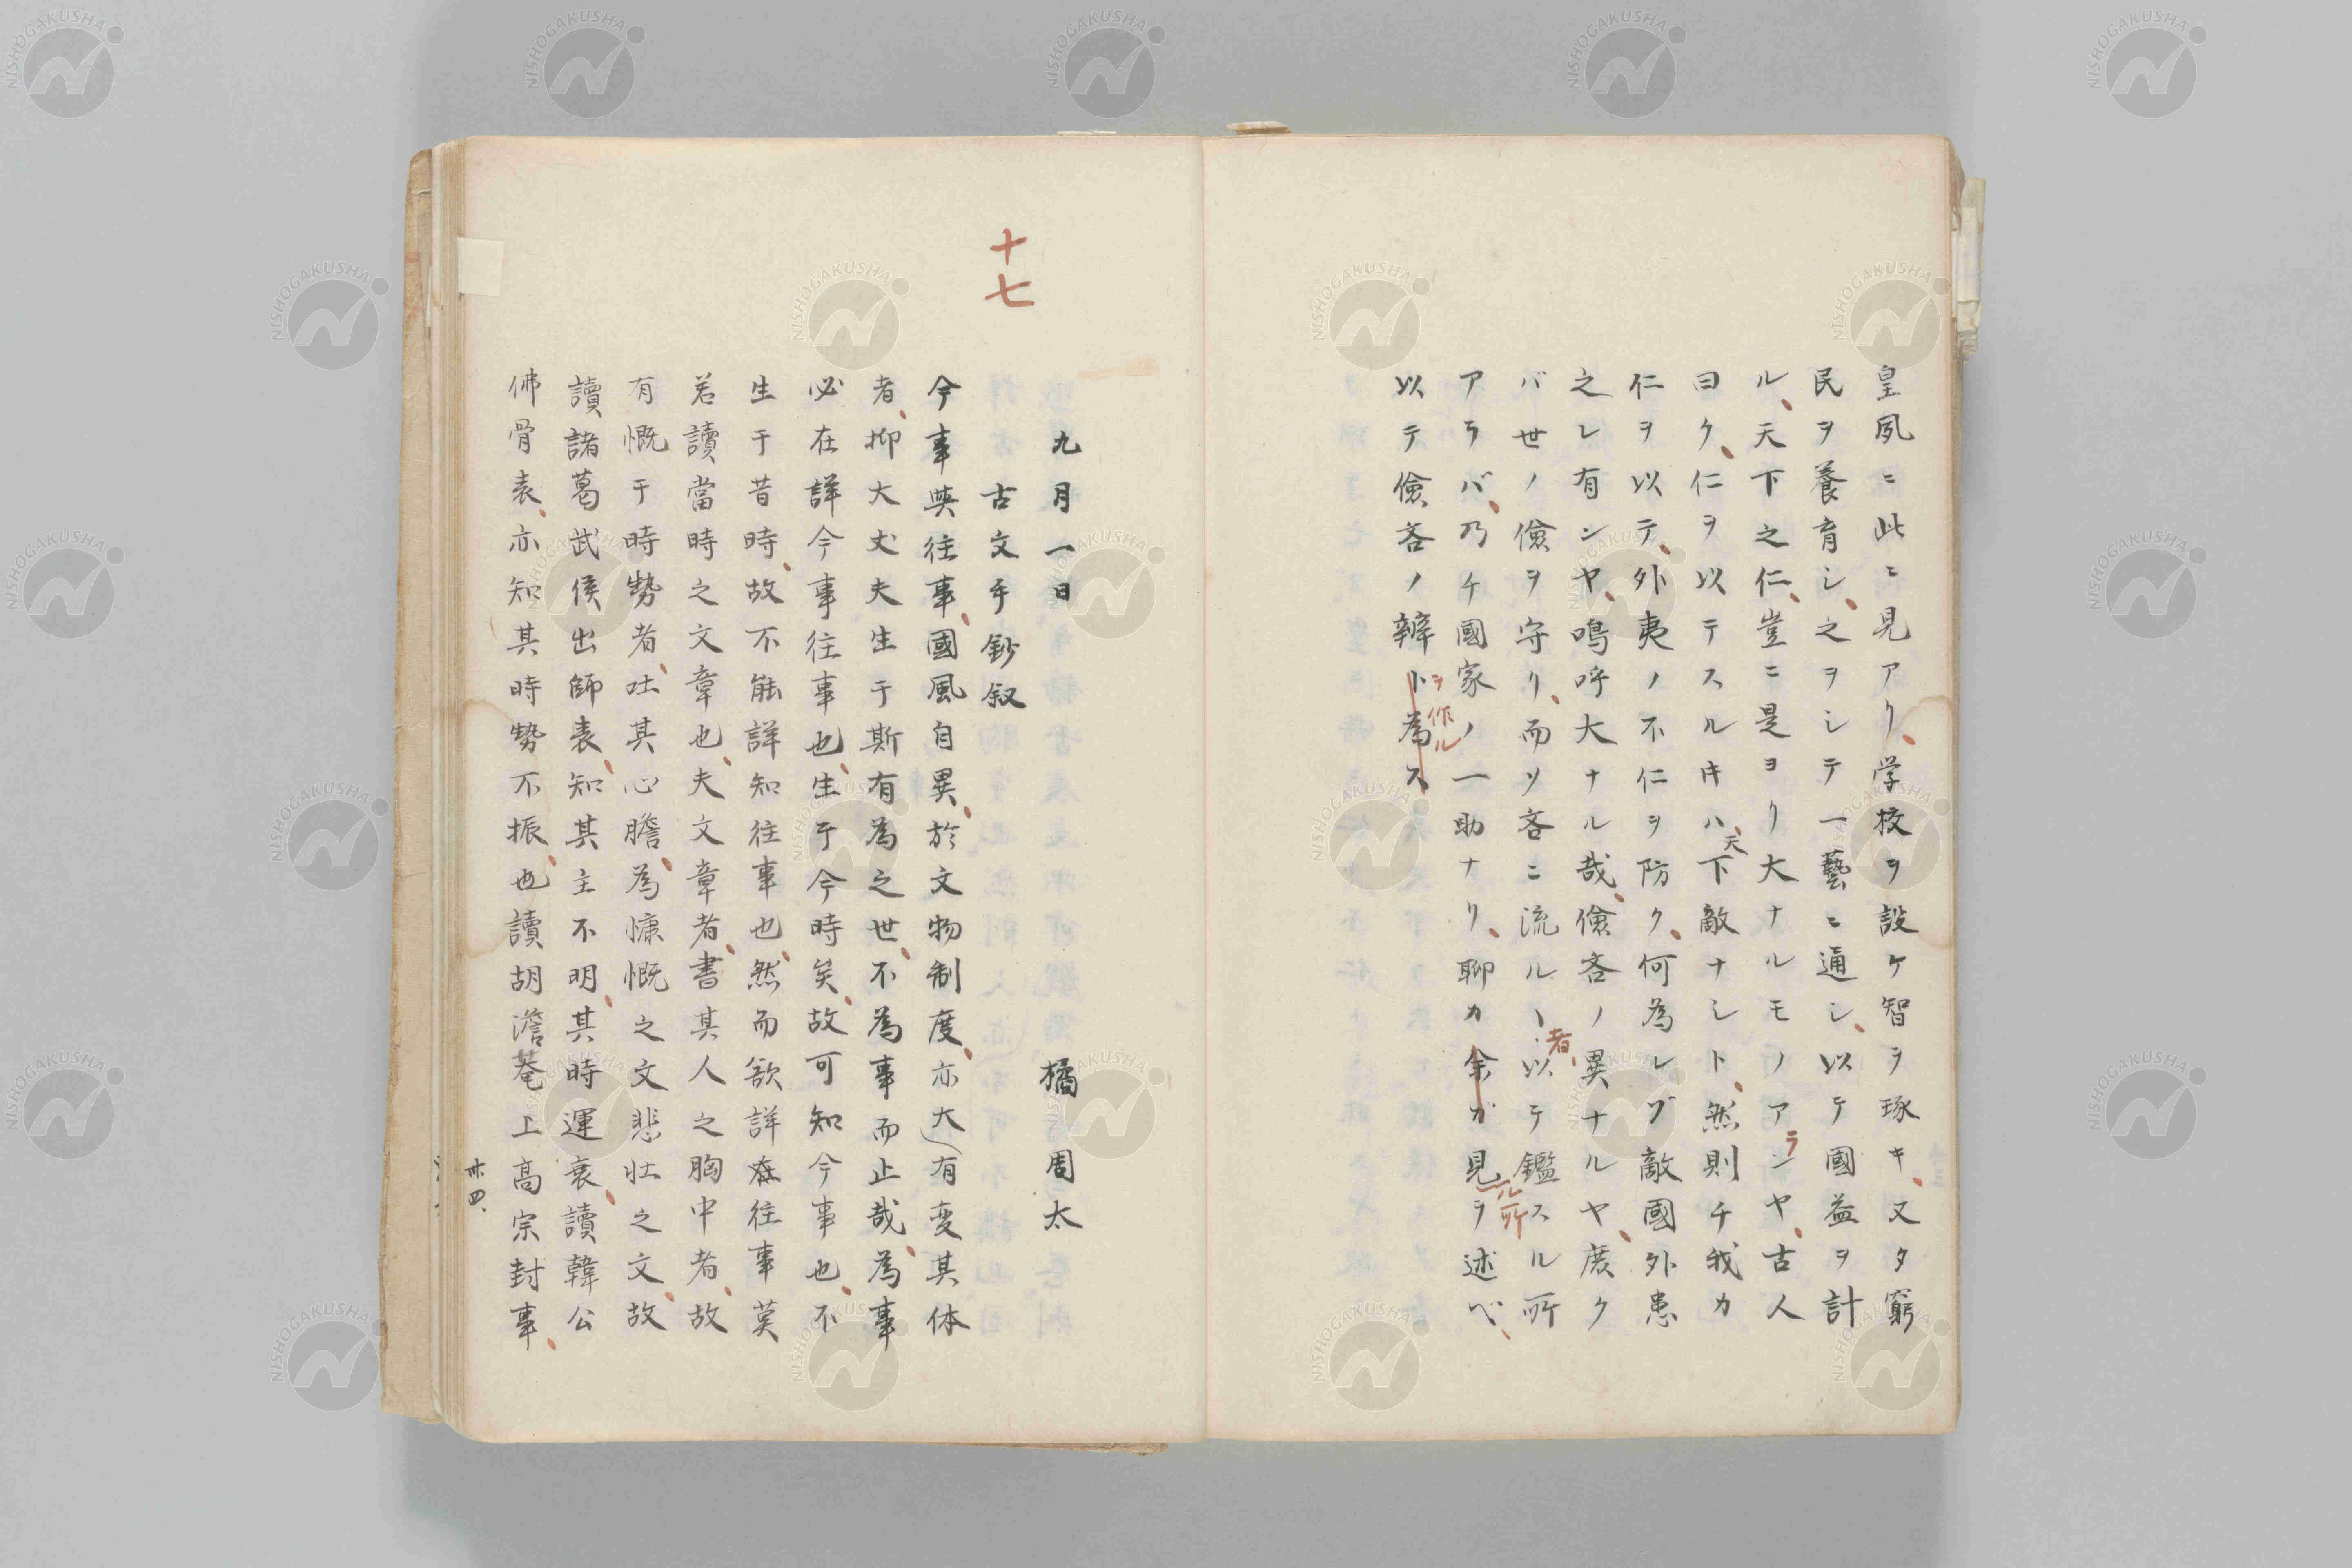 皇夙ニ此ニ見アリ、学校ヲ設ケ智ヲ琢キ、又タ窮
民ヲ養育シ、之ヲシテ一藝ニ通シ、以テ國益ヲ計
ル、天下之仁、豈ニ是ヨリ大ナルモノアランヤ、古人
曰ク、仁ヲ以テスル時ハ、天下敵ナシト、然則チ我カ
仁ヲ以テ、外夷ノ不仁ヲ防ク、何為レゾ敵國外患
之レ有ンヤ、鳴呼大ナル哉、儉吝ノ異ナルヤ、庶ク
バ世ノ儉ヲ守リ、而ソ吝ニ流ル丶者、以テ鑑スル所
アラバ、乃チ國家ノ一助ナリ、聊カ余ガ見ル所ヲ述ベ、
以テ儉吝ノ辨ト為ス
ヲ作ル
十七
九月一日 橘周太
古文手鈔叙
今事與往事、國風自異、於文物制度、亦大有変其体
者、抑大丈夫生于斯有為之世、不為事而止哉、為事
必在詳今事往事也、生于今時矣、故可知今事也、不
生于昔時、故不能詳知往事也、然而欲詳在往事莫
若讀當時之文章也、夫文章者、書其人之胸中者、故
有慨于時勢者、吐其心膽、為慷慨之文悲壮之文、故
讀諸葛武侯出師表、知其主不明、其時運衰、讀韓公
佛骨表、亦知其時勢不振、也讀胡澹菴上高宗封事、
廿四、
NISHOGAKUSHA